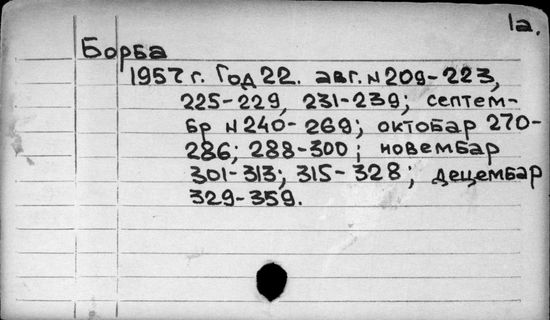 1а.
Борба
1957 г. Год 22. авг. N 209-223,
225-229, 231-239; септем-
бр N 240-269; октобар 270-
286; 288-300; новембар
301-313; 315-328; децембар
329-359.